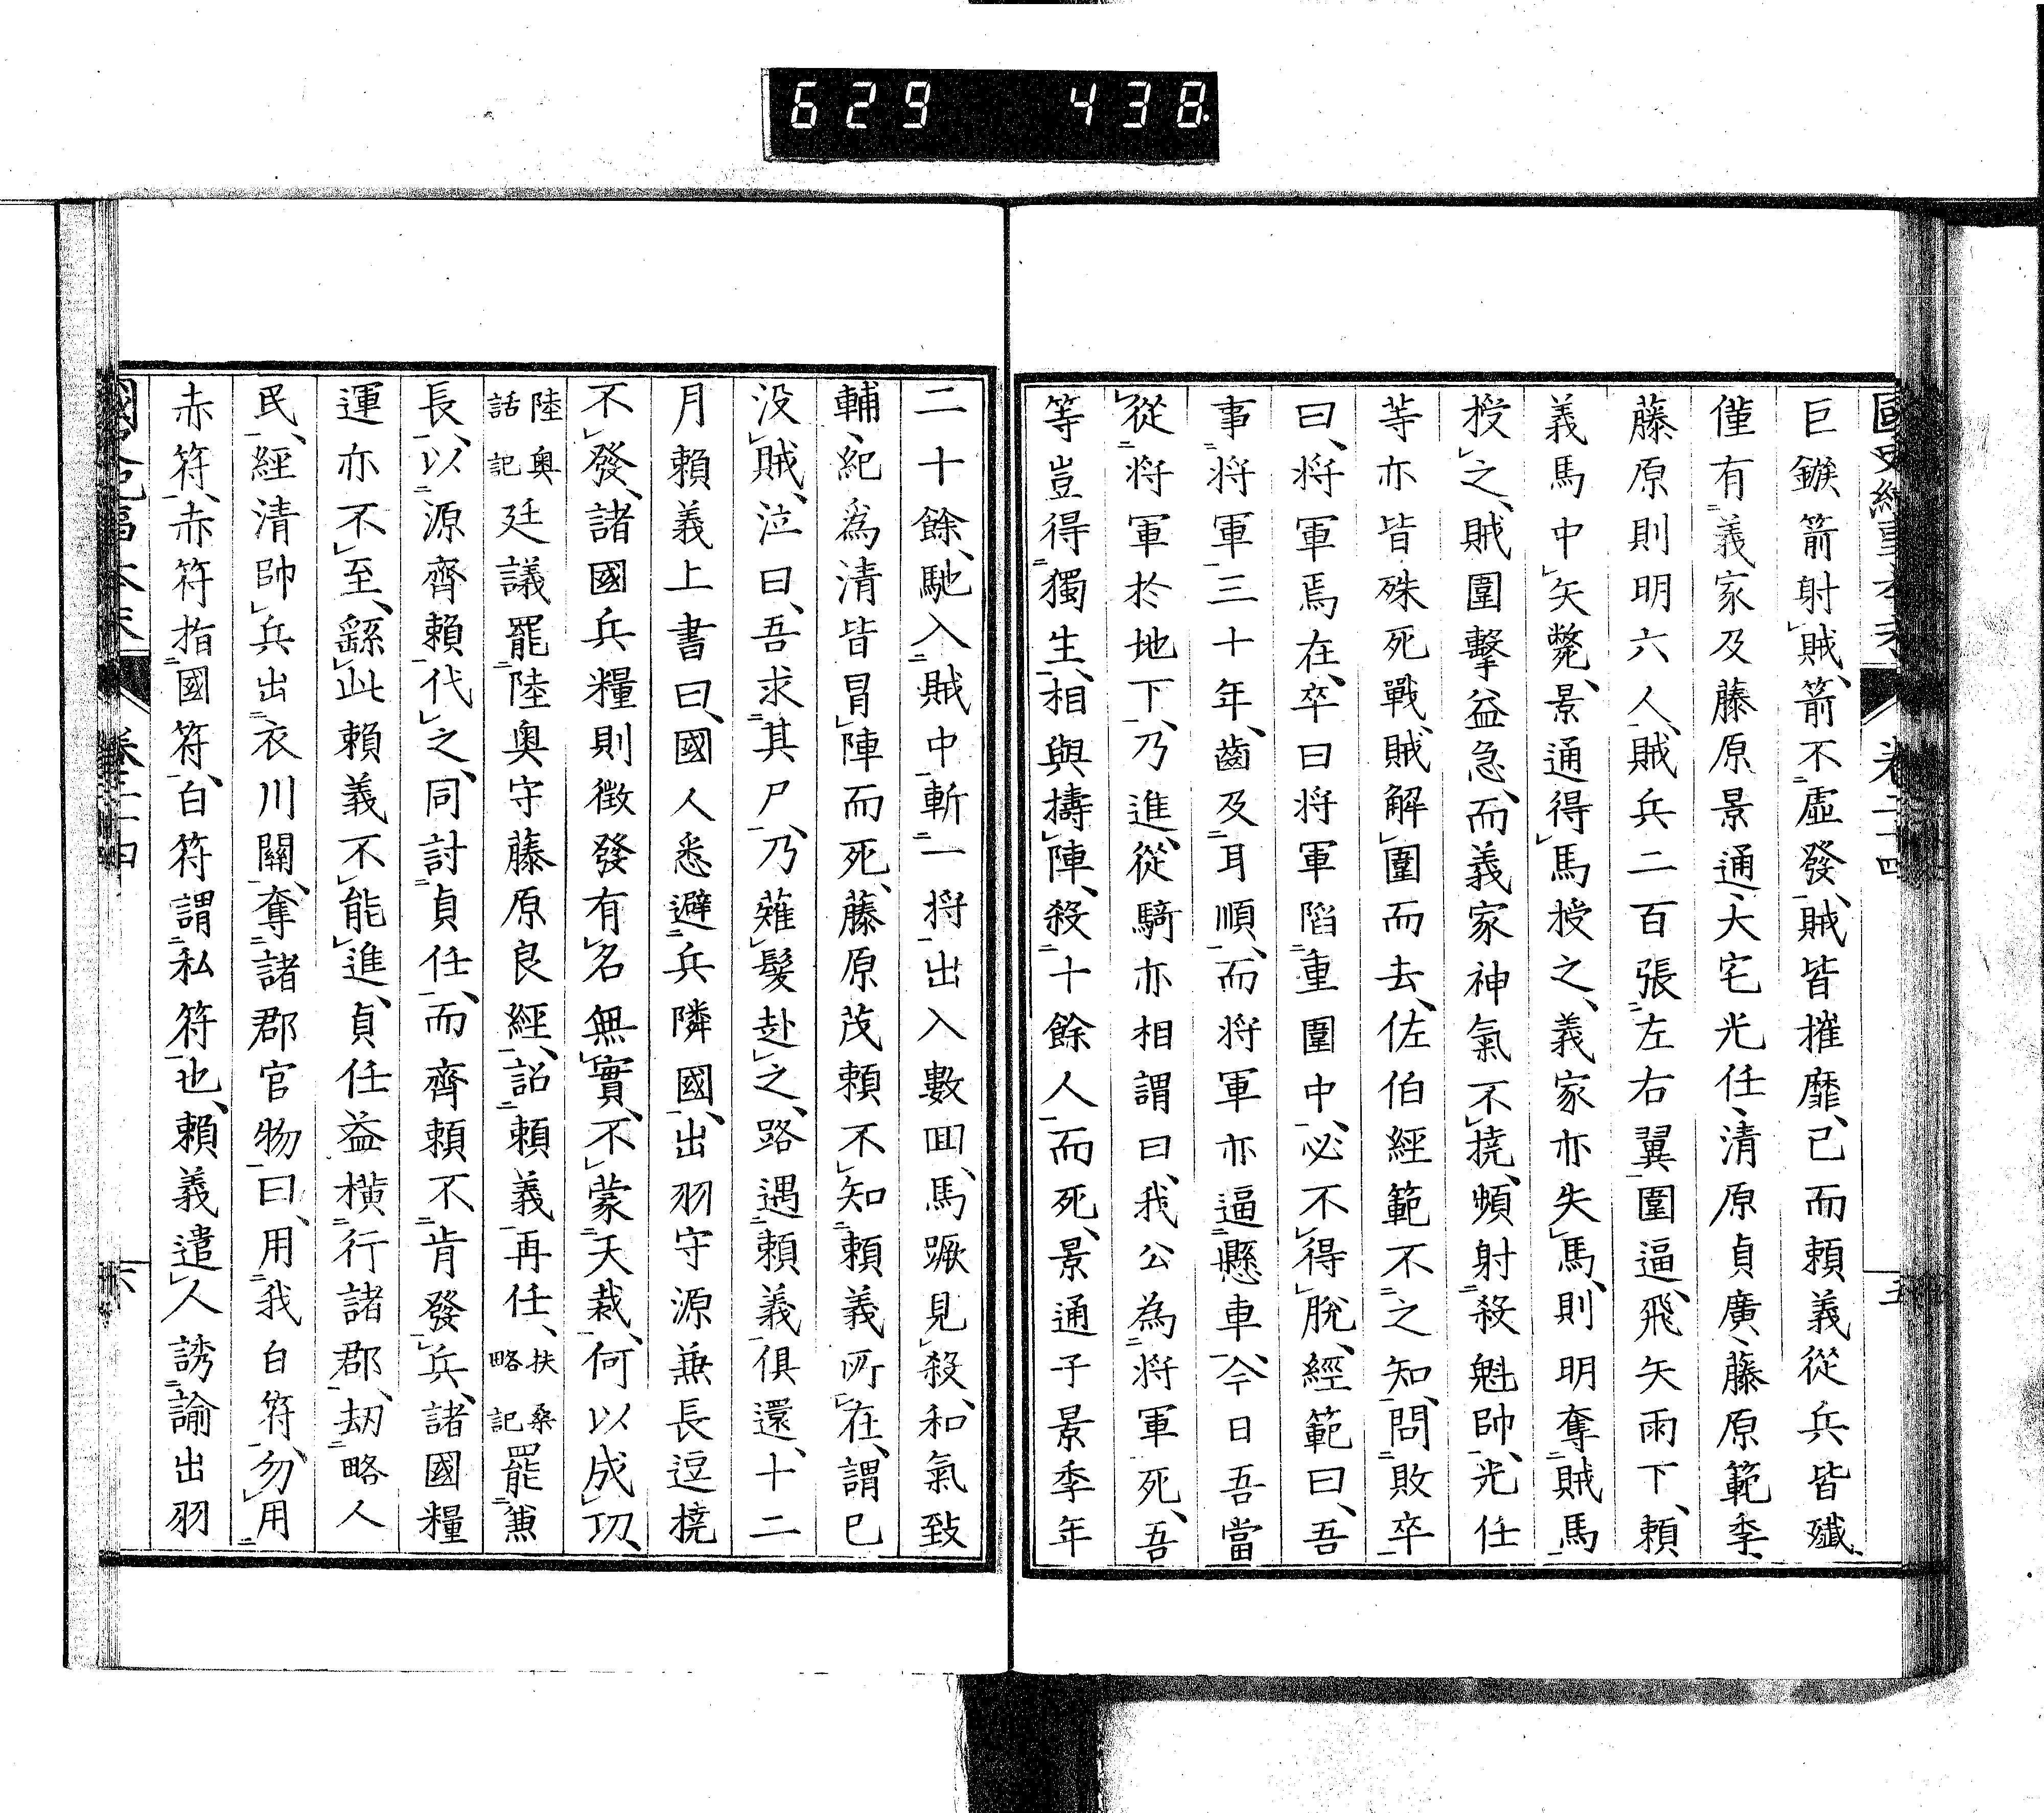 629 438
巨鏃箭射賊、箭不虛發、賊皆摧靡、已而賴義從兵皆殲、
僅有義家及藤原景通、大宅光任、清原貞廣、藤原範季、
藤原則明六人、賊兵二百張左右翼圍逼、飛矢雨下、賴
義馬中矢斃、景通得馬授之、義家亦失馬、則明奪賊馬
授之、賊圍擊益急、而義家神氣不撓、頻射殺魁帥、光任
等亦皆殊死戰、賊解圍而去、佐伯經範不之知、問敗卒
曰、將軍焉在、卒曰將軍陷重圍中、必不得脫、經範曰、吾
事將軍三十年、齒及耳順、而將軍亦逼懸車、今日吾當
從將軍於地下、乃進、從騎亦相謂曰、我公為將軍死、吾
等豈得獨生、相與擣陣、殺十餘人而死、景通子景季年
二十餘、馳入賊中斬一將出入數回、馬蹶見殺、和氣致
輔、紀為清皆冒陣而死、藤原茂賴不知賴義所在、謂已
没賊、泣曰、吾求其尸、乃薙髮赴之、路遇賴義俱還、十二
月賴義上書曰、國人悉避兵隣國、出羽守源兼長逗撓
不發、諸國兵糧則徵發有名無實、不蒙天裁、何以成功、
陸奧話記廷議罷陸奧守藤原良經、詔賴義再任、扶桑略記罷兼
長、以源齊賴代之、同討貞任、而齊賴不肯發兵、諸國糧
運亦不至、繇此賴義不能進、貞任益橫行諸郡、劫略人
民、經清帥兵出衣川關、奪諸郡官物曰、用我白符、勿用
赤符、赤符指國符、白符謂私符也、賴義遣人誘諭出羽